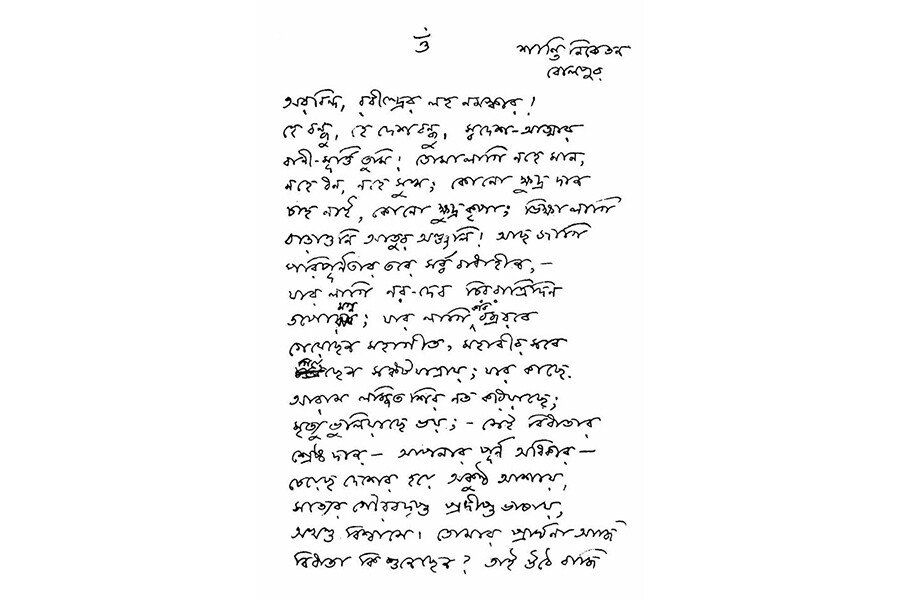 ওঁ
শান্তিনিকেতন
বোলপুর
অরবিন্দ, রবীন্দ্রের লহ নমস্কার!
হে বন্ধু, হে দেশবন্ধু, স্বদেশ-আত্মার
বাণী-মূর্ত্তি তুমি! তোমা লাগি নহে মান,
নহে ধন, নহে সুখ; কোনো ক্ষুদ্র দান
চাহ নাই, কোনো ক্ষুদ্র কৃপা; ভিক্ষা লাগি
বাড়াওনি আতুর অঞ্জলি! আছ জাগি
পরিপূর্ণতার তরে সর্ব্ববাধাহীন,–
যার লাগি নর-দেব চিররাত্রিদিন
তপোমগ্ন; যার লাগি কবি বজ্ররবে
গেয়েছেন মহাগীত, মহাবীর সবে
গিয়েছেন সঙ্কটযাত্রায়; যার কাছে
আরাম লজ্জিত শির নত করিয়াছে;
মৃত্যু ভুলিয়াছে ভয়;– সেই বিধাতার
শ্রেষ্ঠ দান– আপনার পূর্ণ অধিকার–
চেয়েছ দেশের হয়ে অকুণ্ঠ আশায়,
সত্যের গৌরবদৃপ্ত প্রদীপ্ত ভাষায়,
অখণ্ড বিশ্বাসে। তোমার প্রার্থনা আজি
বিধাতা কি শুনেছেন? তাই উঠে বাজি